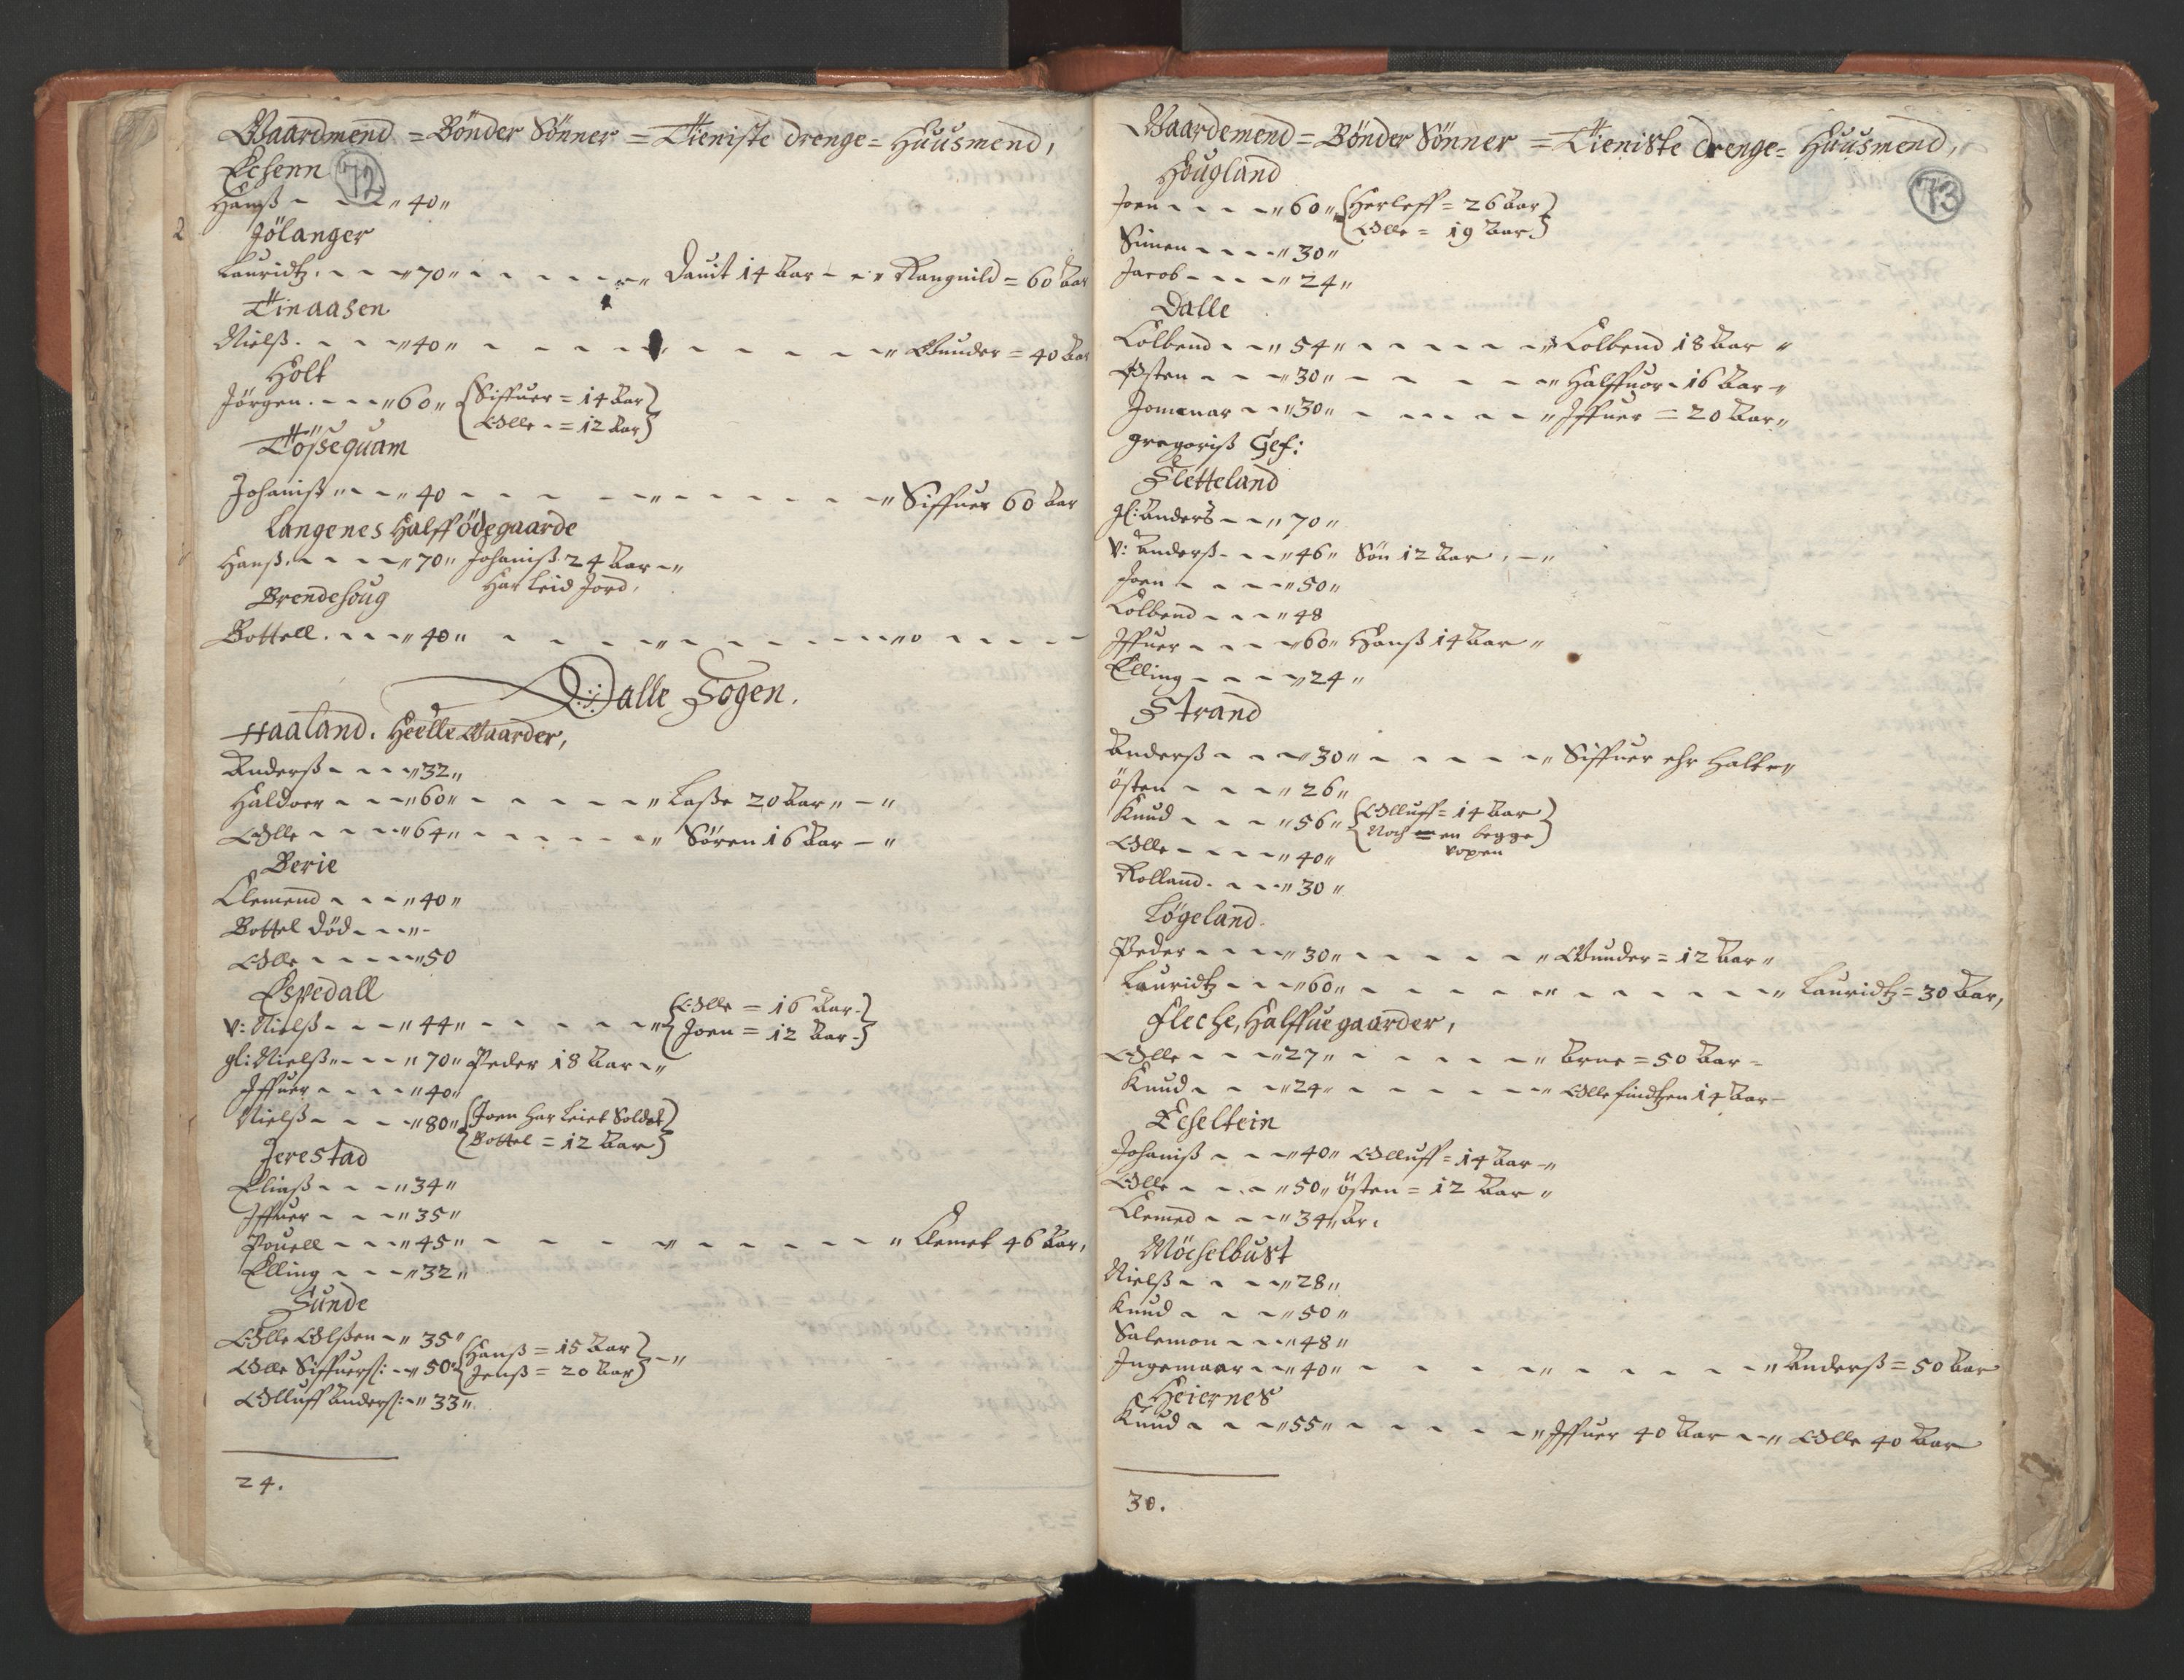 Gaardmend = Bönder Sönner = Tieniste drenge = Huusmend,
Echenn 72
Hanß - - - 40
2
Jölanger
Lauridtz - - - 70 - - - - Dauit 14 Aar - - Rangnild = 60 Aar
Tinaasen
Nielß - - - 40 - - - - - - - - Gunder = 40 Aar
Holt
Jörgen - - - 60 {Siffuer = 14 Aar}
{Olle - = 12 Aar}
Tössequam
Johaniß - - 40 - - - - - - - - Siffuer 60 Aar
Langenes Halff ödegaarde
Hanß - - - 70 Johaniß 24 Aar -
Har leid Jord,
Brendehoug
Bottell - - - 40 - - - - - - - -
Dalle Sogen.
Haaland. Heelle Gaarder,
Anderß - - - 32
Haldoer - - - 60 - - - - - Laße 20 Aar -
Olle - - - 64 - - - - - Sören 16 Aar -
Berie
Clemend - - - 40
Bottel död - - -
Olle - - - - 50
Espedall
{Olle = 16 Aar -}
v: Nielß - - - 44 - - - - - {Joen = 12 Aar -}
gl: Nielß - - - 70 Peder 18 Aar -
Iffuer - - - - 40
Nielß - - - - 80 {Joen har leiet Soldat}
{Bottel = 12 Aar}
Jerestad
Eliaß - - - 34
Iffuer - - - 35
Pouell - - - 45 - - - - - - - - - Clemet 46 Aar,
Elling - - - 32
Sunde
Olle Olßen - 35 {Hanß = 15 Aar}
Olle Siffuerß: - 50 {Jenß = 20 Aar} -
Olluff Anderß: - 33
24.
Gaardemend = Bönder Sönner = Tieniste drenge = Huusmend,
Hougland 73
Joen - - - - 60 {Herleff = 26 Aar}
{Olle = 19 Aar}
Simen - - - - 30
Jacob - - - - 24
Dalle
Colbend - - 54 - - - - - Colbend 18 Aar
Østen - - - 30 - - - - - Halffuor - 16 Aar -
- - 30 - - - - - Iffuer = 20 Aar
gregoriß
Sletteland
gl: Anders - - 70
v: Anderß - - - 46 Sön 12 Aar, -
Joen - - - - 50
Colbend - - - 48
Iffuer - - - - 60 Hanß 14 Aar
Elling - - - - 24
Strand
Anderß - - - 30 - - - - - Siffuer ehr halt -
östen - - - - 26
Knud - - - - 56 {Olluff = 14 Aar}
{Noch = en begge
voxen}
Olle - - - - 40
Rolland - - - 30
Lögeland
Peder - - - - 30 - - - - - Gunder = 12 Aar
Lauridtz - - - 60 - - - - - - - - - - Lauridtz = 30 Aar,
Fleche, Halffue gaarder,
Olle - - - 27 - - - - - Arne = 50 Aar -
Knud - - - 24 - - - - - Olle findtzen 14 Aar -
Echeltein
Johaniß - - - 40 Olluff = 14 Aar -
Olle - - - 50 östen = 12 Aar
Clemed - - - 34 Ar.
Möchelbust
Nielß - - - - 28
Knud - - - 50
Salemon - - - 48
Ingemaar - - 40 - - - - - - - - - Anderß = 50 Aar
Heiernes
Knud - - - - 55 - - - - - Iffuer 40 Aar - - Olle 40 Aar
30.